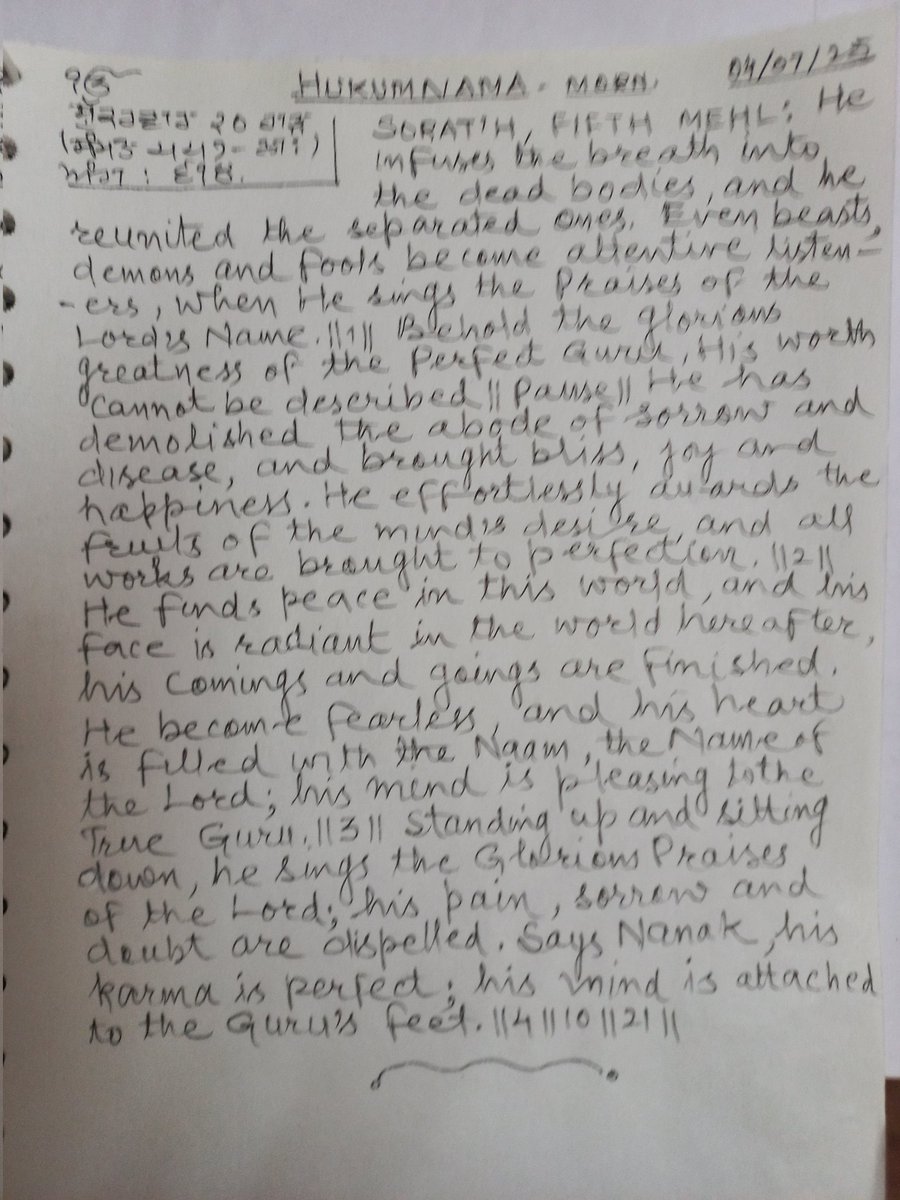 ੴ HUKUMNAMA. MORN. 04/07/25
ਸ਼ੁਕਰਵਾਰ ੨੦ ਹਾੜ
(ਸੰਮਤ
ਅੰਗ : ੬੧੪.
SORAT'H, FIFTH MEHL: He
infuses the breath into
the dead bodies, and he
reunited the separated ones. Even beasts,
demons and fools become attentive listen-
-ers, when He sings the Praises of the
Lord's Name. ||1|| Behold the glorious
greatness of the perfect Guru, His worth
cannot be described || Pause || He has
demolished the abode of sorrow and
disease, and brought bliss, joy and
happiness. He effortlessly awards the
fruits of the mind's desire, and all
works are brought to perfection. ||2||
He finds peace in this world, and his
face is radiant in the world hereafter,
his comings and goings are finished.
He become fearless, and his heart
is filled with the Naam, the Name of
the Lord; his mind is pleasing to the
True Guru. ||3|| Standing up and sitting
down, he sings the Glorious Praises
of the Lord; his pain, sorrow and
doubt are dispelled. Says Nanak, his
karma is perfect; his mind is attached
to the Guru's feet. ||4||10||21||